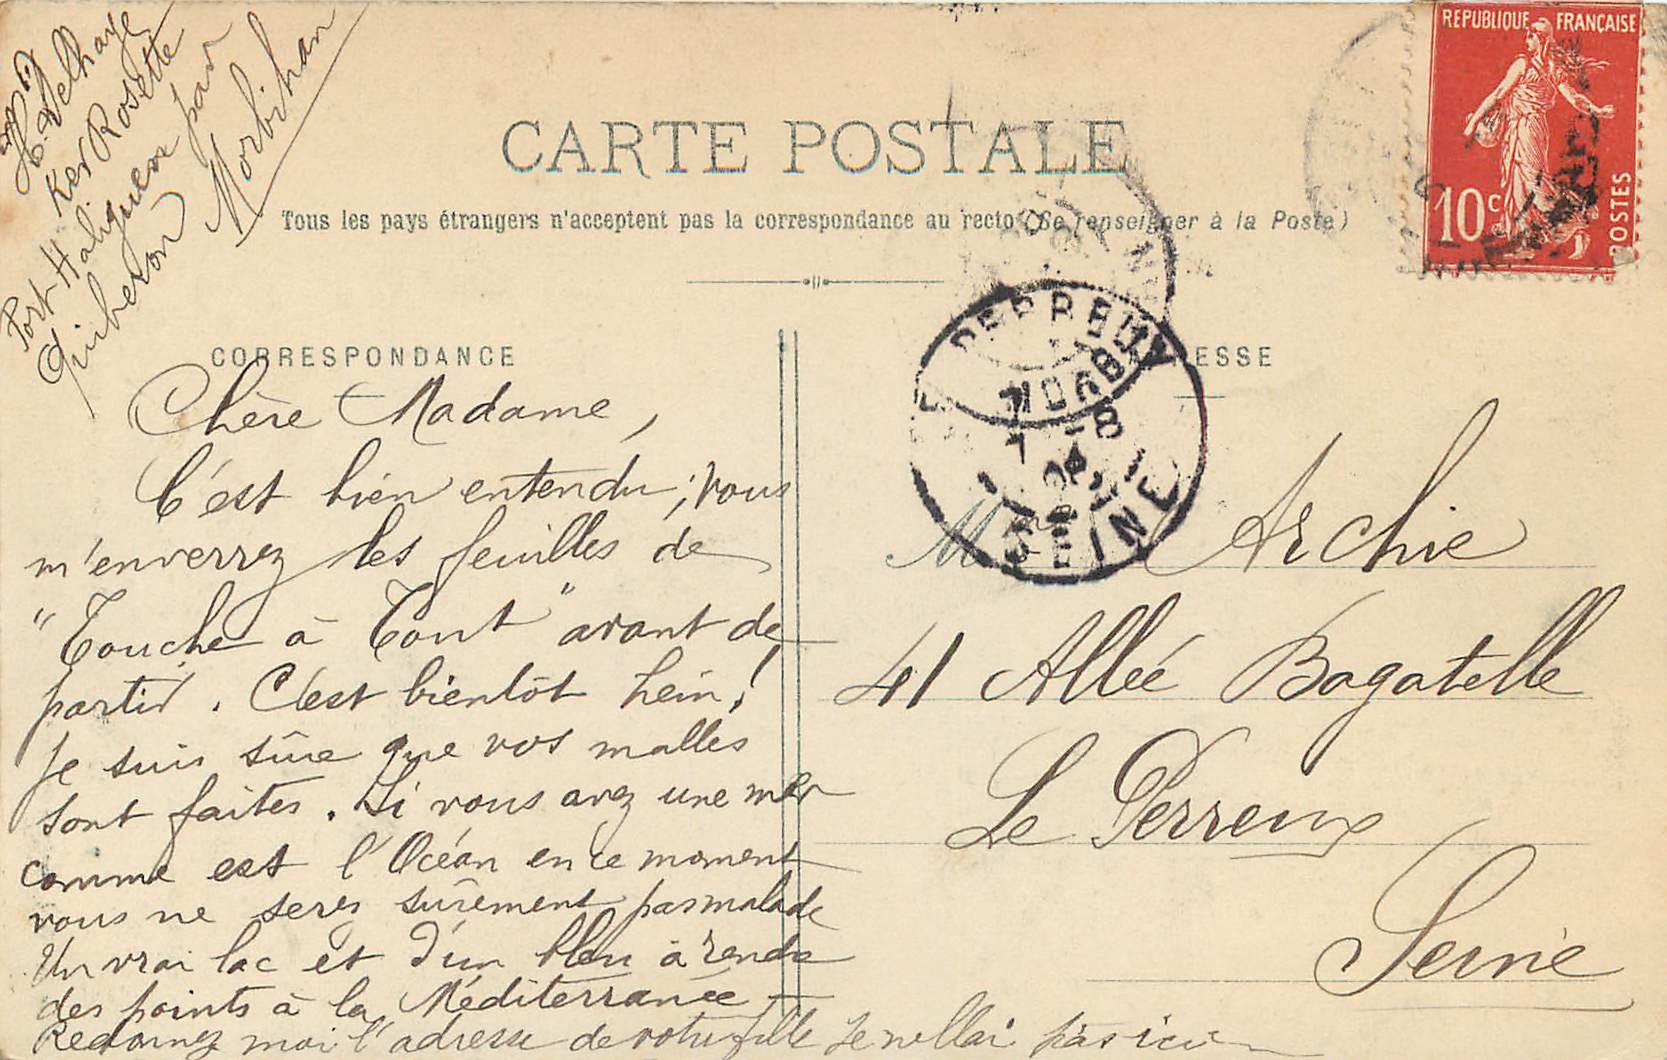 H. Delhaye
Ker Rosette
Port Haliguen par
Quiberon
Morbihan
CARTE POSTALE
Tous les pays étrangers n'acceptent pas la correspondance au recto (Se renseigner à la Poste)
REPUBLIQUE FRANÇAISE
10c
POSTES
CORRESPONDANCE
Chère Madame,
C'est bien entendu; vous
m'enverrez les feuilles de
"Touche à Tout" avant de
partir. C'est bientôt hein!
Je suis sûre que vos malles
sont faites. Si vous avez une mer
comme est l'Océan en ce moment
vous ne serez sûrement pas malade
Un vrai lac et d'un bleu à rendre
des points à la Méditerranée
Redonnez moi l'adresse de votre fille Je ne l'ai pas ici
LE PERREUX
SEINE
ESSE
M Archie
41 Allée Bagatelle
Le Perreux
Seine